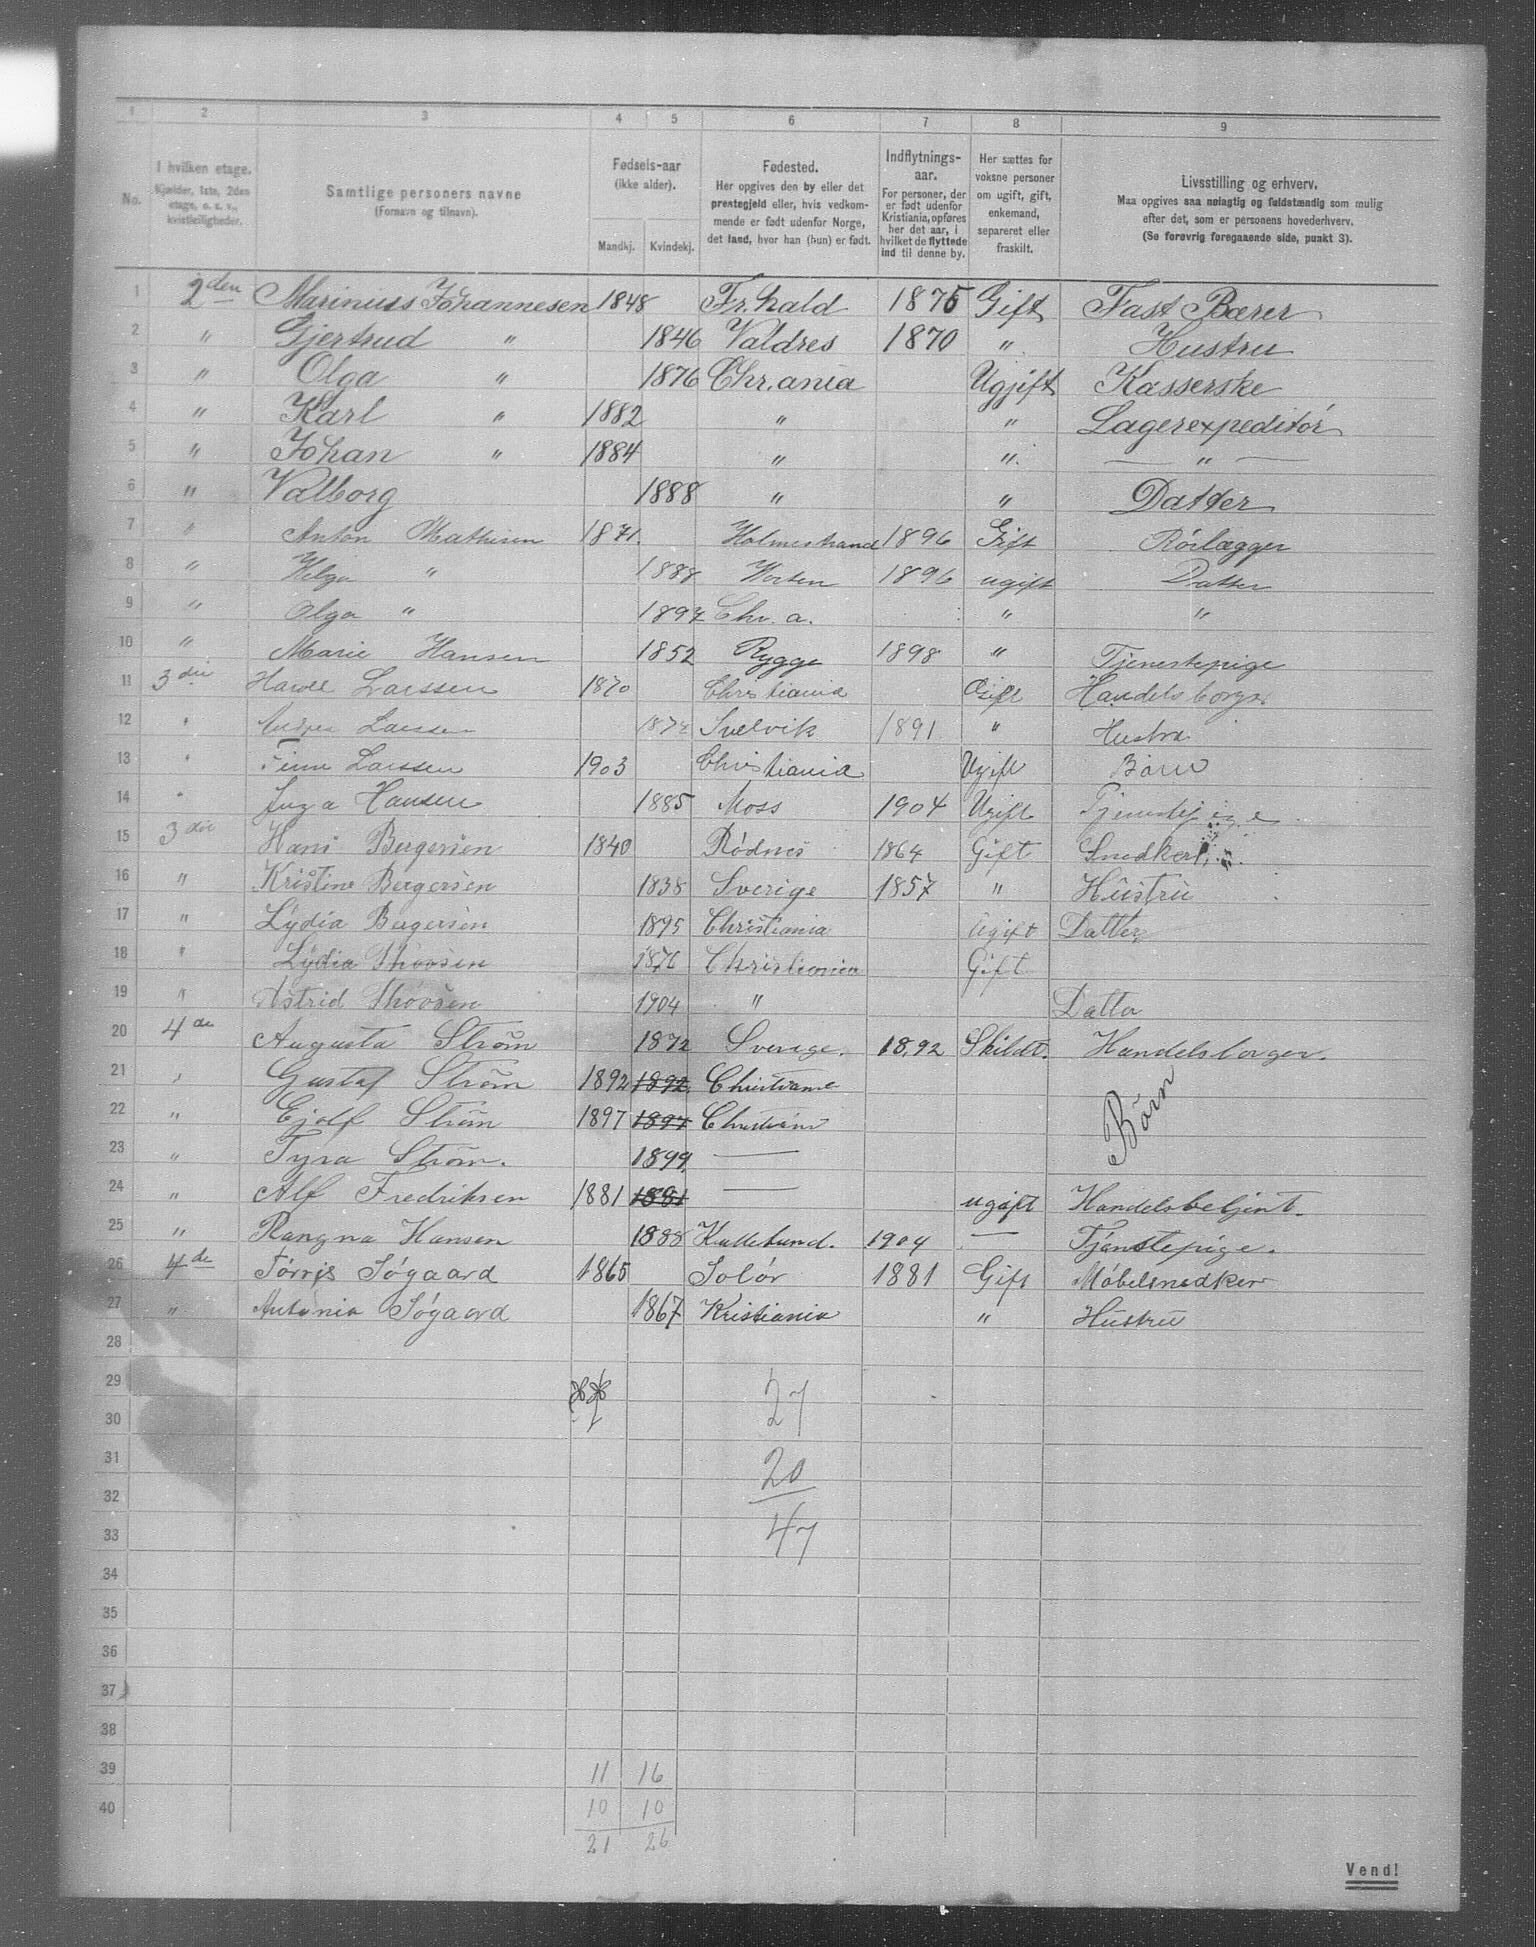 1 2 3 4 5 6 7 8 9
No.
I hvilken etage.
Kjælder, 1ste, 2den
etage, o. s. v.,
kvistleiligheder.
Samtlige personers navne
(Fornavn og tilnavn).
Fødsels-aar
(ikke alder).
Mandkj. Kvindekj.
Fødested.
Her opgives den by eller det
prestegjeld eller, hvis vedkom-
mende er født udenfor Norge,
det land, hvor han (hun) er født.
Indflytnings-
aar.
For personer, der
er født udenfor
Kristiania, opføres
her det aar, i
hvilket de flyttede
ind til denne by.
Her sættes for
voksne personer
om ugift, gift,
enkemand,
separeret eller
fraskilt.
Livsstilling og erhverv.
Maa opgives saa nøiagtig og fuldstændig som mulig
efter det, som er personens hovederhverv.
(Se forøvrig foregaaende side, punkt 3).
1 2den Marinius Johannesen 1848 Fr.hald 1875 Gift Fast Bærer
2 " Gjertrud " 1846 Valdres 1870 " Hustru
3 " Olga " 1876 Chr.ania Ugjift Kasserske
4 " Karl " 1882 " " Lagerexpeditør
5 " Johan " 1884 " " — " —
6 " Valborg 1888 " " Datter
7 " Anton Mathisen 1871. Holmestrand 1896 Gift Rørlægger
8 " Helga " 1888 Horten 1896 ugift Datter
9 " Olga " 1897 Chr. a. " "
10 " Marie Hansen 1852 Rygge 1898 " Tjenestepige
11 3die Larssen 1870 Christiania Gift Handelsborger
12 " Larssen 1874 Svelvik 1891 " Hustru
13 " Finn Larssen 1903 Christiania Ugift Barn
14 " Inga Hansen 1885 Moss 1904 Ugift Tjenestepige
15 3die Hans Bergersen 1840 Rødnes 1864 Gift Snedker
16 " Kristine Bergersen 1838 Sverige 1857 " Hustru
17 " Lydia Bergersen 1895 Christiania Ugift Datter
18 " Lydia Thovsen 1876 Christiania Gift
19 " Astrid Thovsen 1904 " Datter
20 4de Augusta Strøm 1872 Sverige. 1892 Skildt. Handelsborger.
21 " Gustaf Strøm 1892 1892 Christiania
22 " Ejolf Strøm 1897 1897 Christiania Børn
23 " Tyra Strøm. 1899 —
24 " Alf Fredriksen 1881 1881 — ugift Handelsbetjent.
25 " Rangna Hansen 1888 1904 — Tjenstepige.
26 4de Søgaard 1865 Solør 1881 Gift Møbelsnedker
27 " Antonie Søgaard 1867 Kristiania " Hustru
28
29 27
30
31 20
32
33 47
34
35
36
37
38
39 11 16
40 10 10
21 26
Vend!